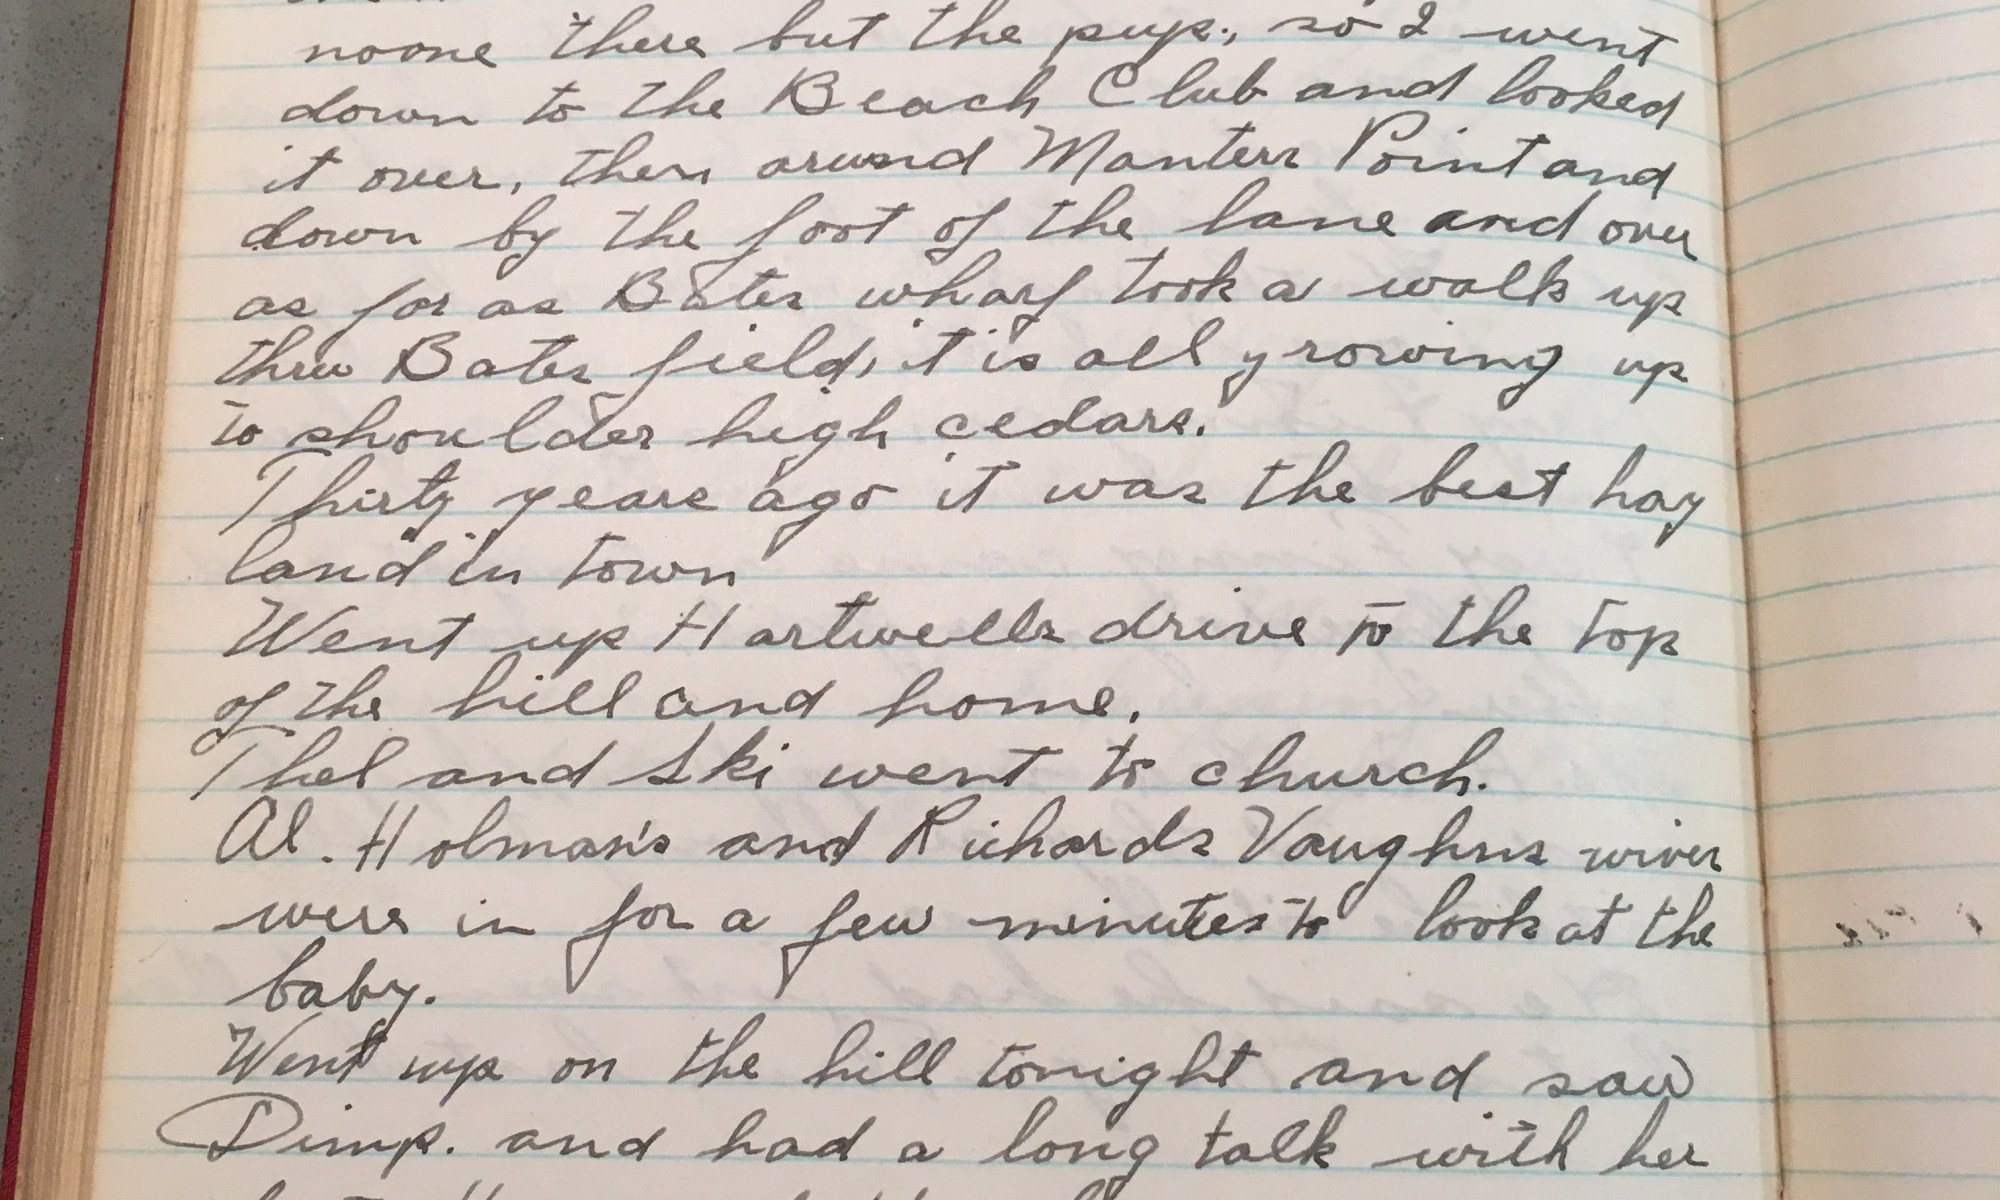 noone there but the pup., so I went
down to the Beach Club and looked
it over, then around Manters Point and
down by the foot of the lane and over
as far as Bates wharf took a walk up
thru Bates field, it is all growing up
to shoulder high cedars.
Thirty years ago it was the best hay
land in town
Went up Hartwells drive to the top
of the hill and home.
Thel and Ski went to church.
Al. Holman's and Richards Vaughns wives
were in for a few minutes to look at the
baby.
Went up on the hill tonight and saw
Dimp. and had a long talk with her